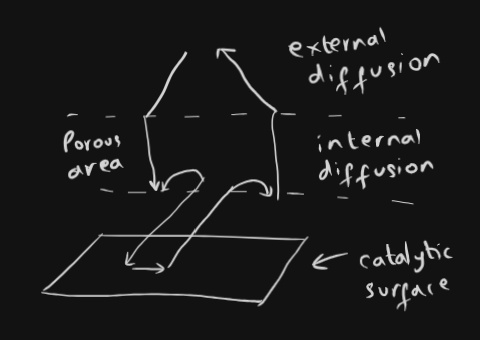 external
diffusion
Porous
area
internal
diffusion
catalytic
surface